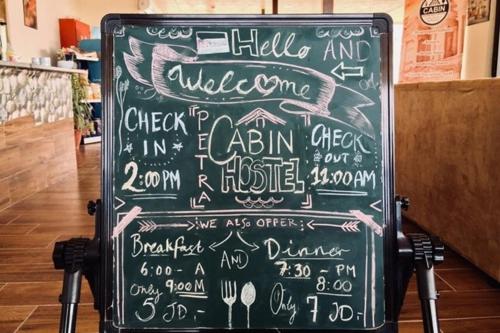 CABIN
Hello AND
Welcome
CHECK IN
2:00 PM
PETRA
CABIN
HOSTEL
CHECK OUT
11:00 AM
WE ALSO OFFER:
Breakfast AND Dinner
6:00 - A
9:00 M
Only
5 JD,-
7:30 - PM
8:00
Only 7 JD,-